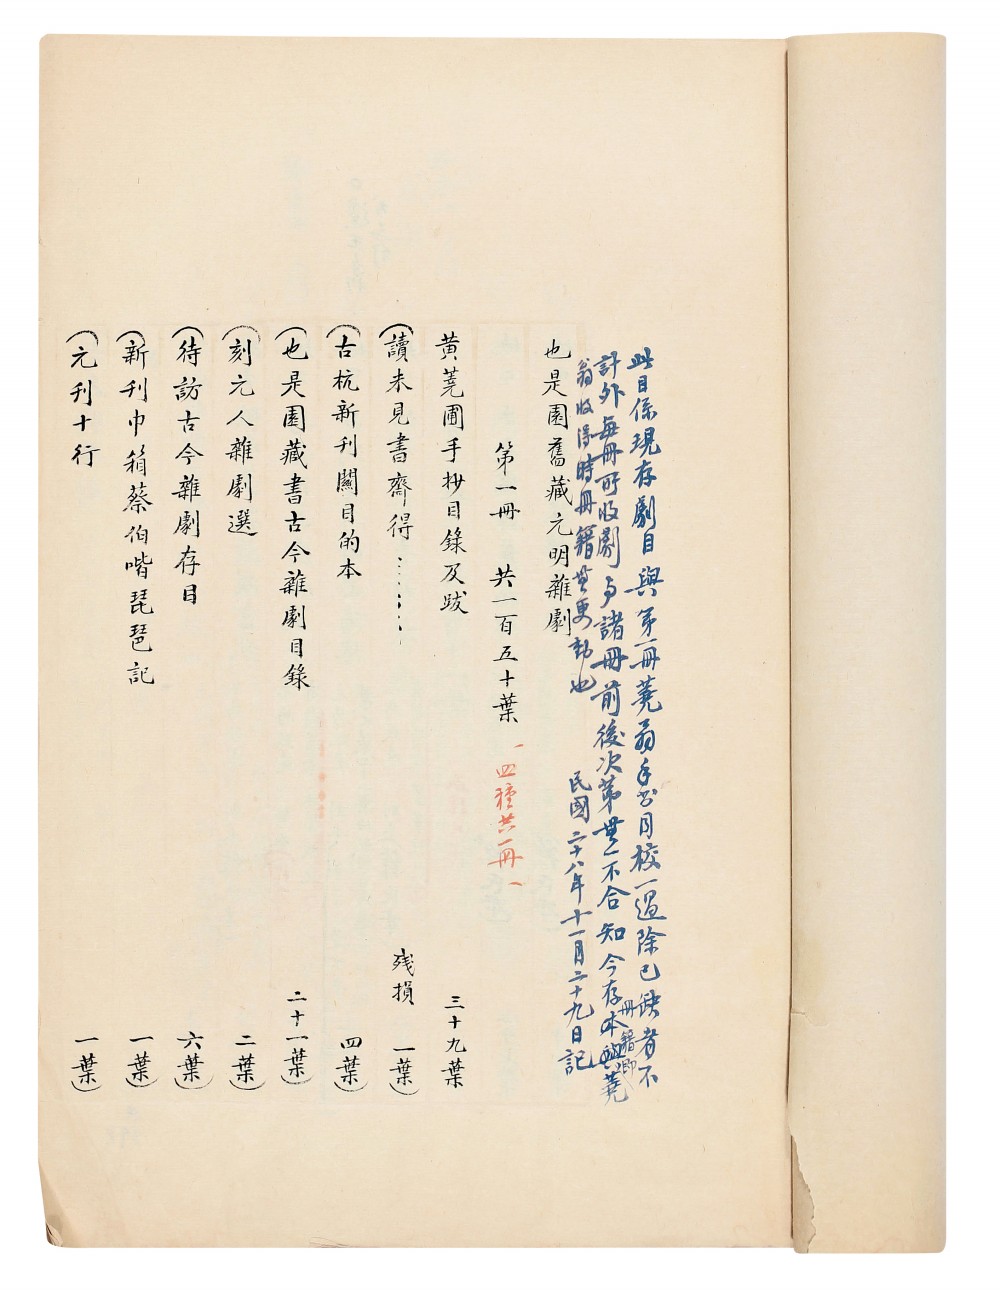 此目係現存劇目與第一冊蕘翁手書目校一過除已缺者不
計外每冊所收劇與諸冊前後次第無一不合知今存本冊籍即蕘
翁收得時冊籍無更動也　民國二十八年十一月二十九日記
也是園舊藏元明雜劇
第一冊　共一百五十葉　四種共一冊
黃蕘圃手抄目錄及跋　三十九葉
(讀未見書齋得……　殘損　一葉)
(古杭新刊關目的本　四葉)
(也是園藏書古今雜劇目錄　二十一葉)
(刻元人雜劇選　二葉)
(待訪古今雜劇存目　六葉)
(新刊巾箱蔡伯喈琵琶記　一葉)
(元刊十行　一葉)